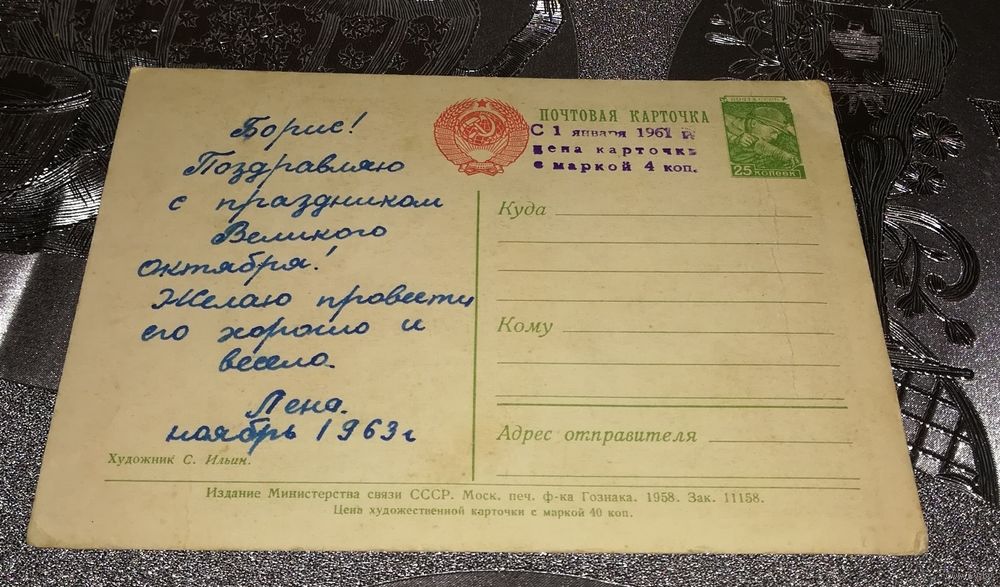 Борис!
Поздравляю
с праздником
Великого
Октября!
Желаю провести
его хорошо и
весело.
Лена.
ноябрь 1963 г
Художник С. Ильин.
ПОЧТОВАЯ КАРТОЧКА
С 1 января 1961 г.
цена карточки
с маркой 4 коп.
ПОЧТА СССР
25 КОПЕЕК
Куда
Кому
Адрес отправителя
Издание Министерства связи СССР. Моск. печ. ф-ка Гознака. 1958. Зак. 11158.
Цена художественной карточки с маркой 40 коп.